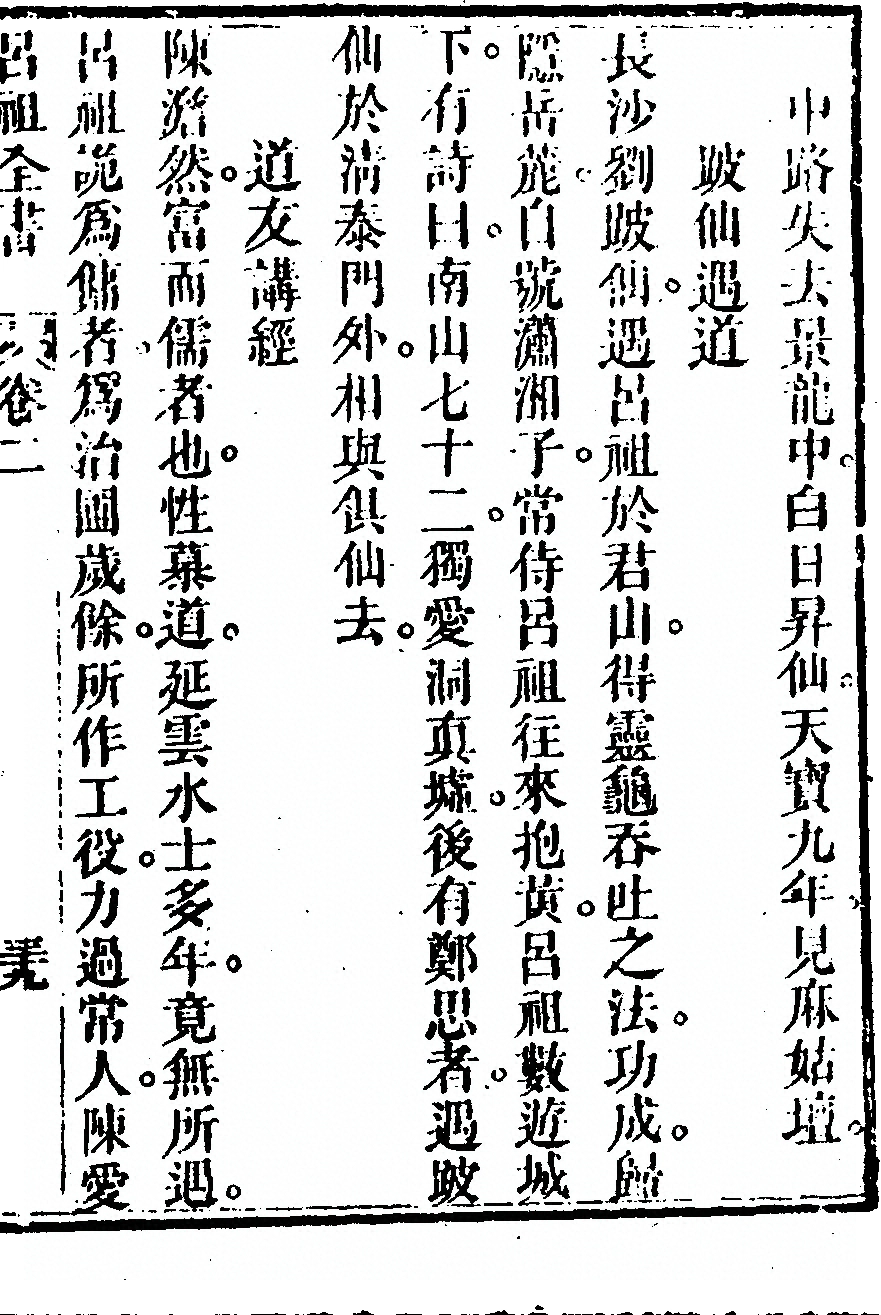 中路失去景龍中白日昇仙天寶九年見麻姑壇
跛仙遇道
長沙劉跛仙遇呂祖於君山得靈龜吞吐之法功成歸
隱岳麓自號瀟湘子常侍呂祖往來抱黃呂祖數遊城
下有詩曰南山七十二獨愛洞真墟後有鄭思者遇跛
仙於淸泰門外相與俱仙去
道友講經
陳澹然富而儒者也性慕道延雲水士多年竟無所遇
呂祖詭爲傭者爲治圃歲餘所作工役力過常人陳愛
呂祖全書 卷二